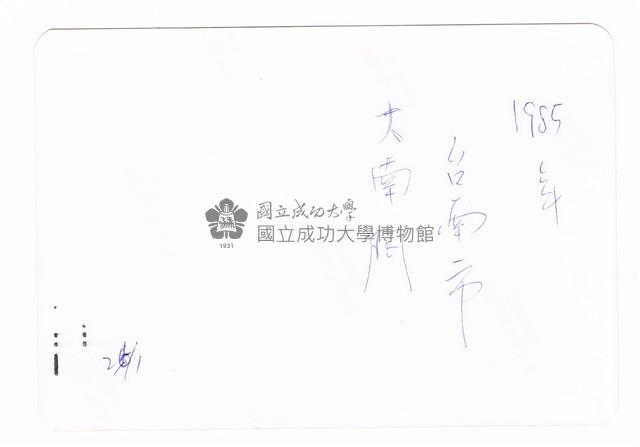 1985
年
台南市
大南門
國立成功大學
國立成功大學博物館
1931